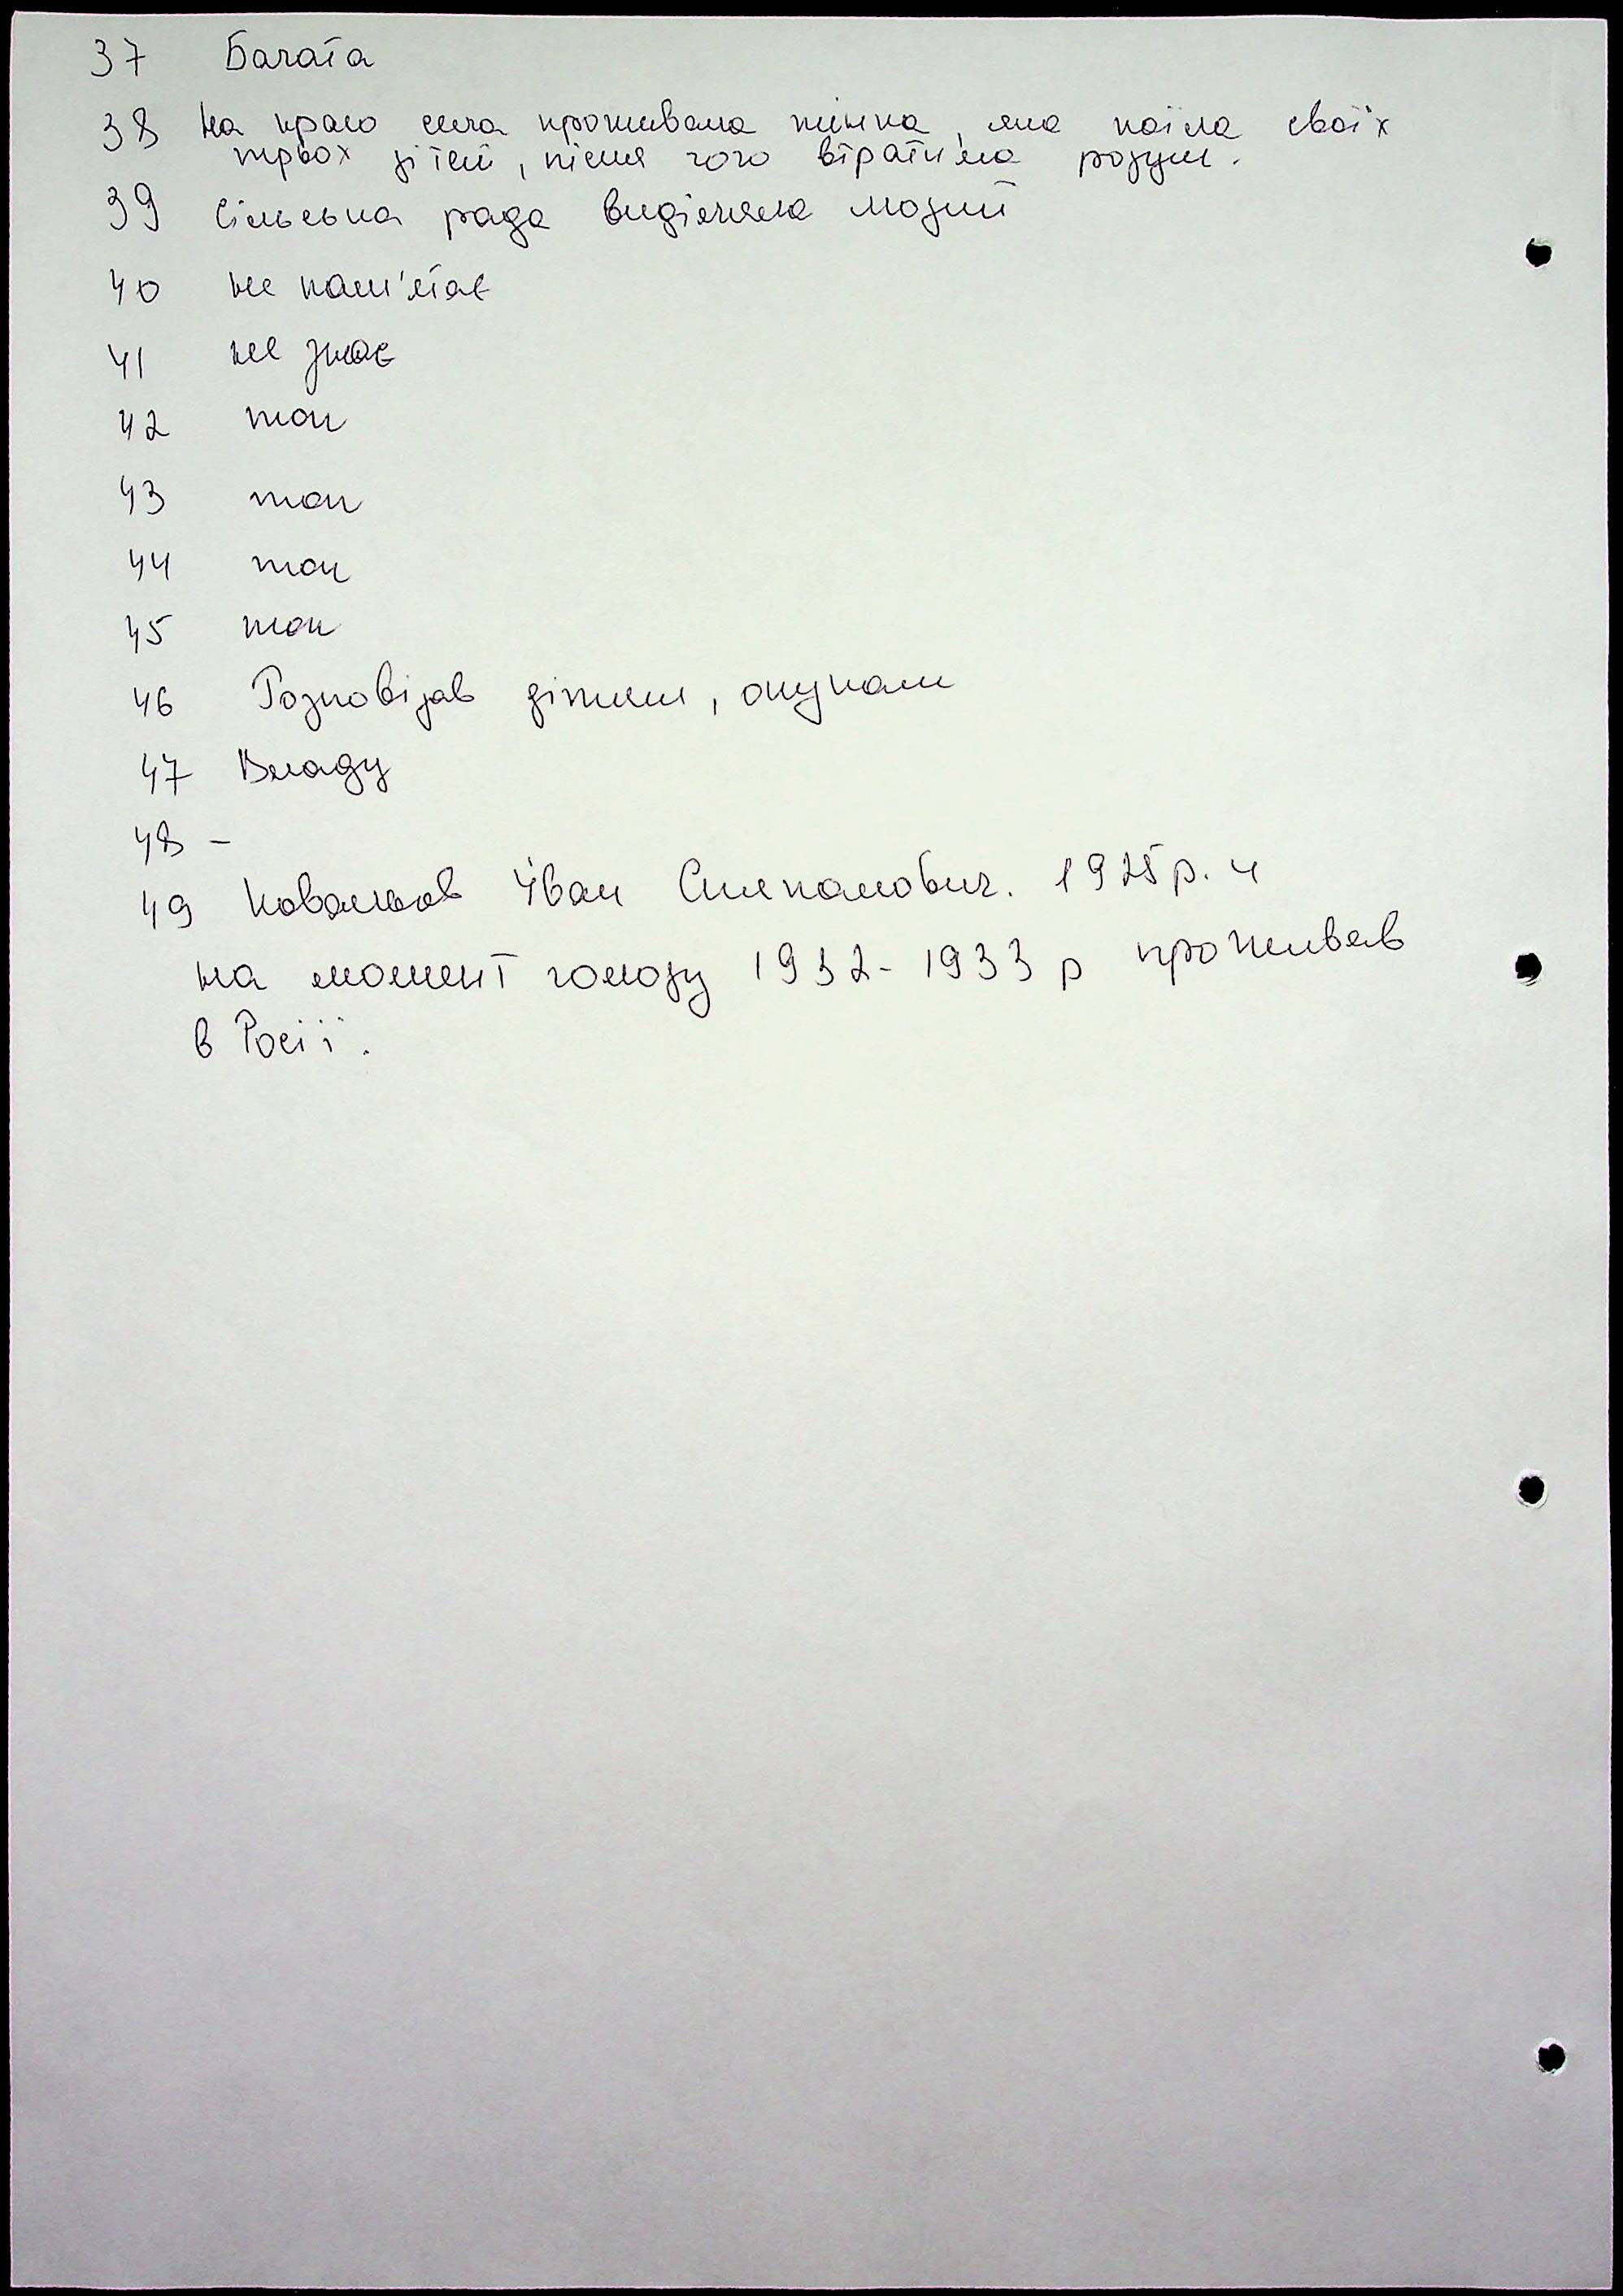 37 Багата
38 На краю села проживала жінка, яка поїла своїх
трьох дітей, після чого втратила розум.
39 Сільська рада виділяла людей
40 не пам'ятає
41 не знає
42 так
43 так
44 так
45 так
46 Розповідав дітям, онукам
47 Владу
48 -
49 Ковальов Іван Степанович. 1925 р. ч
на момент голоду 1932-1933 р проживав
в Росії.